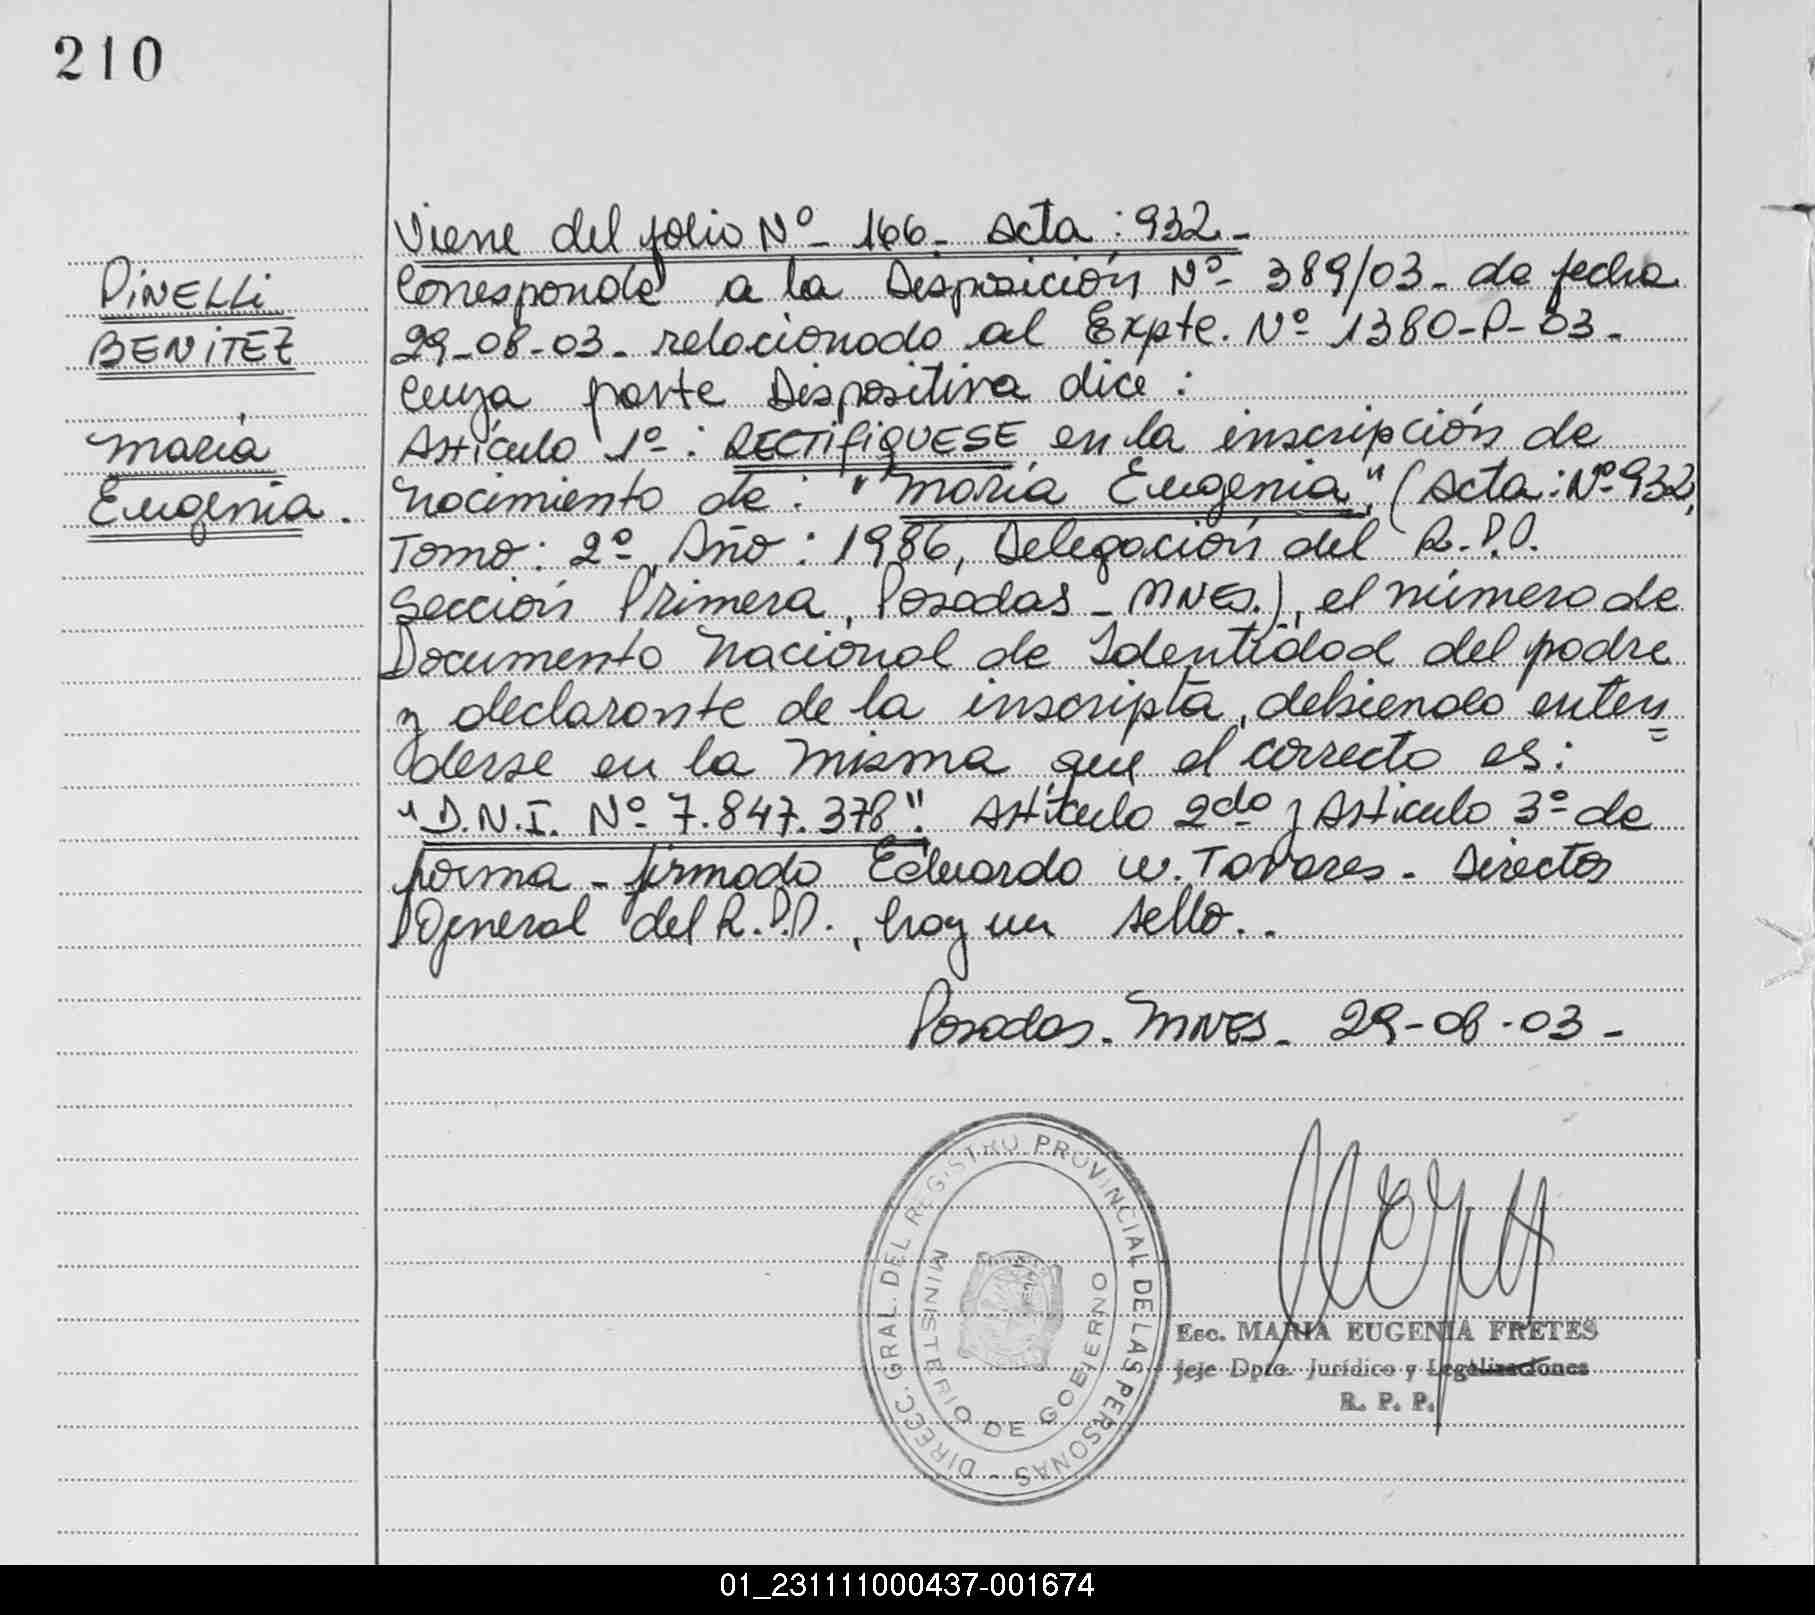 210
PINELLI
BENITEZ
María
Eugenia.
Viene del folio Nº- 166- Acta: 932.-
Corresponde a la Disposición Nº- 389/03- de fecha
29-08-03- relacionado al Expte. Nº 1380-P-03-
Cuya parte Dispositiva dice:
Artículo 1º-: RECTIFIQUESE en la inscripción de
nacimiento de: "María Eugenia", (Acta: Nº 932,
Tomo: 2º, Año: 1986, Delegación del R.P.P.
Sección Primera, Posadas - MNES.), el número de
Documento Nacional de Identidad del padre
y declarante de la inscripta, debiendo enten=
derse en la misma que el correcto es:
"D.N.I. Nº 7.847.378". Artículo 2do y Artículo 3º de
forma - firmado Eduardo W. Tavares - Director
General del R.P.P., hay un sello..
Posadas - MNES - 29-08-03-
DIREC. GRAL. DEL REGISTRO PROVINCIAL DE LAS PERSONAS -
MINISTERIO DE GOBIERNO
Esc. MARIA EUGENIA FRETES
Jefe Dpto. Jurídico y Legalizaciones
R. P. P.
01_231111000437-001674